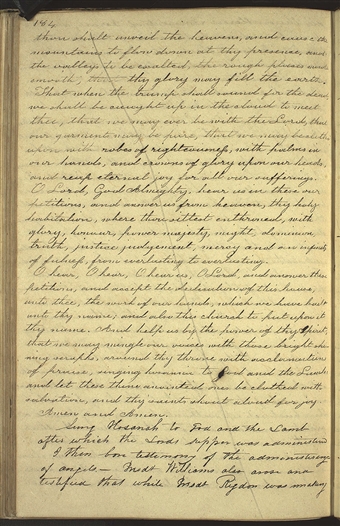 184
thou shalt unveil the heavens, and cause the
mountains to flow down at thy presence, and
the valleys to be exalted, the rough places made
smooth, thy glory may fill the earth.
That when the trump shall sound for the dead,
we shall be caught up in the cloud to meet
thee, that we may ever be with the Lord, that
our garments may be pure, that we may be clothed
upon with robes of righteousness, with palms in
our hands, and crowns of glory upon our heads,
and reap eternal joy for all our sufferings.
O Lord, God Almighty, hear us in these our
petitions, and answer us from heaven, thy holy
habitation, where thou sittest enthroned, with
glory, honour, power majesty, might, dominion
truth, justice judgement, mercy and an infinity
of fulness, from everlasting to everlasting.
O hear, O hear, O hear us, O Lord, and answer these
petitions, and accept the dedication of this house,
unto thee, the work of our hands, which we have built
unto thy name; and also this church to put upon it
thy name. And help us by the power of thy Spirit,
that we may mingle our voices with those bright shi
ning seraphs, around thy throne with acclamation
of praise, singing hosanna to God and the Lamb;
and let these thine anointed ones be clothed with
salvation, and thy saints shout aloud for joy
Amen and Amen.
Sung Hosanah to God and the Lamb
after which the Lords supper was administered
I then bore testimony of the administering
of angels— Presdt Williams also arose and
testified that while Presdt Rigdon was making